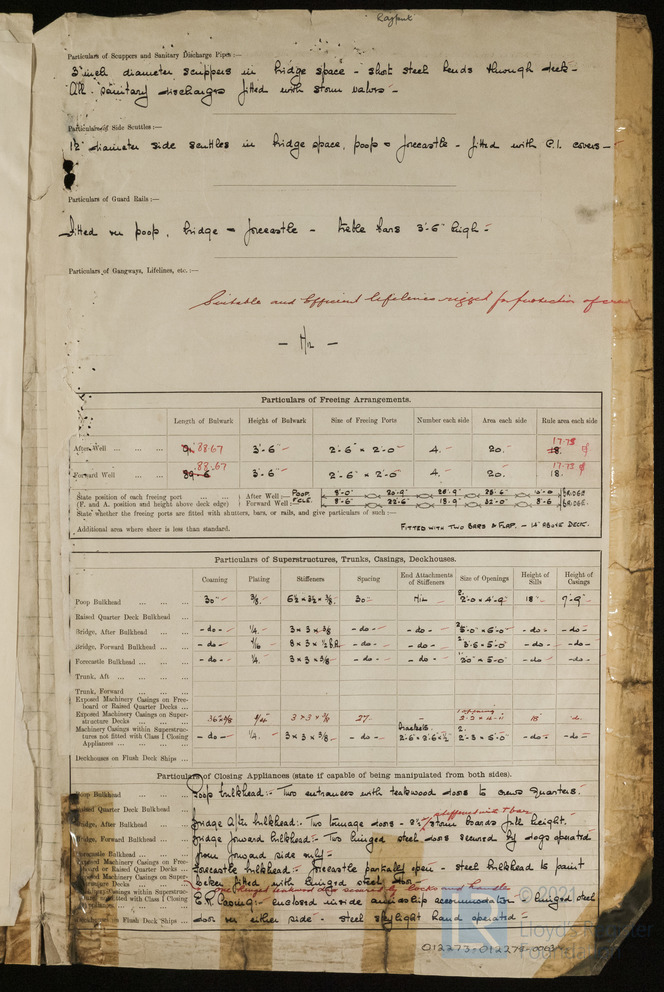 Particulars of Scuppers and Sanitary Discharge Pipes :—
3 inch diameter scuppers in bridge space - short steel bends through deck -
All sanitary discharges fitted with storm valves -
Particulars of Side Scuttles :—
12" diameter side scuttles in bridge space, poop & forecastle - fitted with C.I. covers -
Particulars of Guard Rails :—
Fitted on poop, bridge & forecastle - treble bars 3'-6" high -
Particulars of Gangways, Lifelines, etc. :—
Suitable and Efficient lifelines rigged for protection of crew
Particulars of Freeing Arrangements.
Length of Bulwark Height of Bulwark Size of Freeing Ports Number each side Area each side Rule area each side
After Well 88.67 3'-6" 2'-6" × 2'-0" 4. 20. 17.73 18.
Forward Well 88.67 89-6 3'-6" 2'-6" × 2'-0" 4. 20. 17.73 18.
State position of each freeing port After Well :— POOP 20'-9" BRIDGE
(F. and A. position and height above deck edge) Forward Well :— FCLE 22'-6" 18'-9" 32'-0" 8'-6 BRIDGE
State whether the freeing ports are fitted with shutters, bars, or rails, and give particulars of such :—
FITTED WITH TWO BARS & FLAP. - 12" ABOVE DECK.
Additional area where sheer is less than standard.
Particulars of Superstructures, Trunks, Casings, Deckhouses.
Coaming Plating Stiffeners Spacing End Attachments of Stiffeners Size of Openings Height of Sills Height of Casings
Poop Bulkhead 30" 3/8 6½ × 3½ × 3/8 30 Nil 2. 2'-0 × 4'-9" 18" 7'-9"
Raised Quarter Deck Bulkhead
Bridge, After Bulkhead - do - 1/4 3 × 3 × 3/8 - do - - do - 5'-0" × 6'-0" - do - - do -
Bridge, Forward Bulkhead - do - 8 × 3 × ½ B.A. - do - - do - 3'-6 × 5'-0" - do - - do -
Forecastle Bulkhead - do - 1/4 3 × 3 × 3/8 - do - - do - 2'0" × 5'-0" - do - - do -
Trunk, Aft
Trunk, Forward
Exposed Machinery Casings on Freeboard or Raised Quarter Decks
Exposed Machinery Casings on Superstructure Decks 3 × 3 × 3/8 27 1 opening 18 do.
Machinery Casings within Superstructures not fitted with Class I Closing Appliances - do - 1/4 3 × 3 × 3/8 - do - brackets 2'-6 × 2'-6 × ½" 2. 2'-3 × 5'-0" - do - - do -
Deckhouses on Flush Deck Ships
Particulars of Closing Appliances (state if capable of being manipulated from both sides).
Poop Bulkhead Poop bulkhead :- Two entrances with teakwood doors to crews quarters.
Raised Quarter Deck Bulkhead
Bridge, After Bulkhead Bridge After bulkhead :- Two tonnage doors - 2½" storm boards full height.
Bridge, Forward Bulkhead Bridge forward bulkhead :- Two hinged steel doors secured by dogs operated
Forecastle Bulkhead from forward side only -
Exposed Machinery Casings on Freeboard or Raised Quarter Decks Forecastle bulkhead :- forecastle partially open - steel bulkhead to paint
Exposed Machinery Casings on Superstructure Decks locker fitted with hinged steel door -
Machinery Casings within Superstructures not fitted with Class I Closing Appliances E.R. Casing :- enclosed inside amidship accommodation & hinged steel
Deckhouses on Flush Deck Ships door on either side - steel skylight hand operated -
© 2021
Lloyd's Register
Foundation